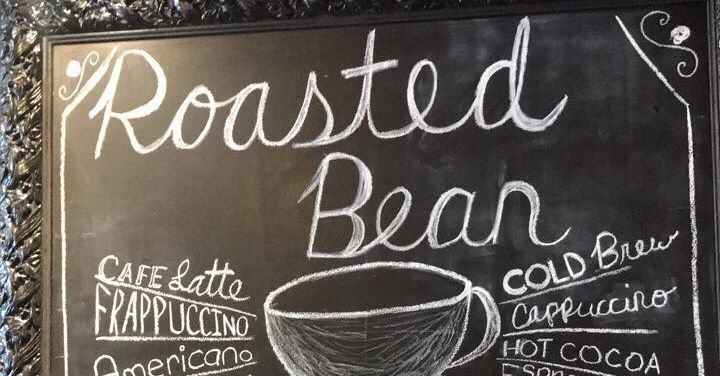 Roasted
Bean
CAFE Latte
FRAPPUCCINO
Americano
COLD Brew
Cappuccino
HOT COCOA